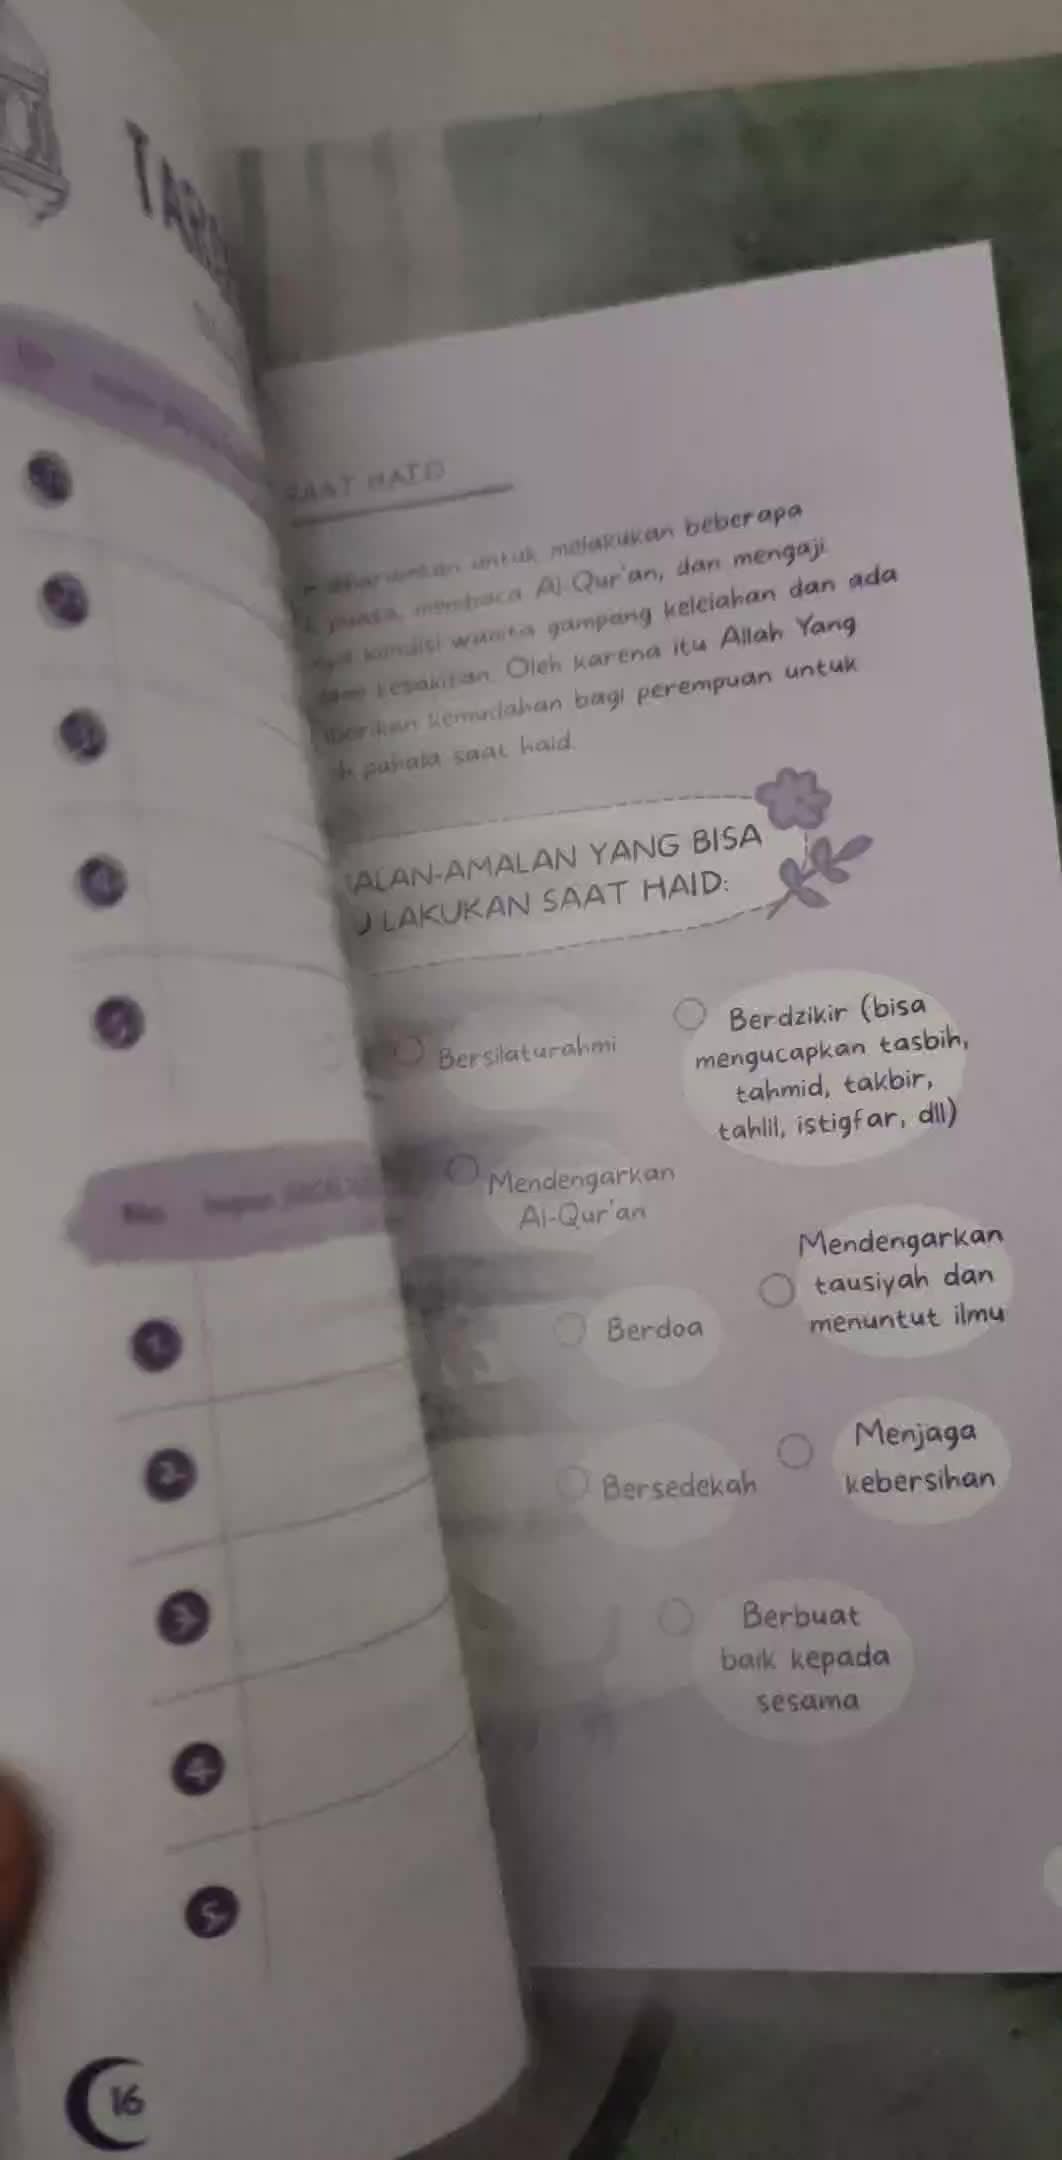 TAR
SAAT HAID
untuk melakukan beberapa
membaca Al-Qur'an, dan mengaji
kondisi wanita gampang kelelahan dan ada
kesakitan. Oleh karena itu Allah Yang
kemudahan bagi perempuan untuk
pahala saat haid.
ALAN-AMALAN YANG BISA
LAKUKAN SAAT HAID:
Bersilaturahmi
Berdzikir (bisa
mengucapkan tasbih,
tahmid, takbir,
tahlil, istigfar, dll)
Mendengarkan
Al-Qur'an
Mendengarkan
tausiyah dan
menuntut ilmu
Berdoa
Menjaga
kebersihan
Bersedekah
Berbuat
baik kepada
sesama
4
5
No
1
2
3
4
5
16